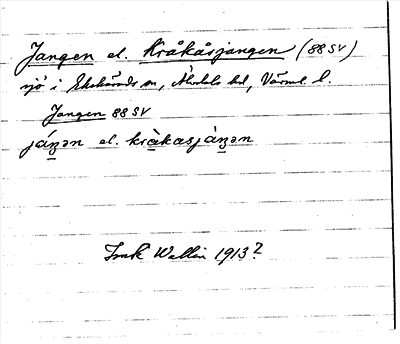 Jangen el. Kråkåsjangen (88 SV)
sjö i Ekshärads sn, Älvdals hd, Värml. l.
Jangen 88 SV
jáŋən el. kràkasjàŋən
Wallin 1913?